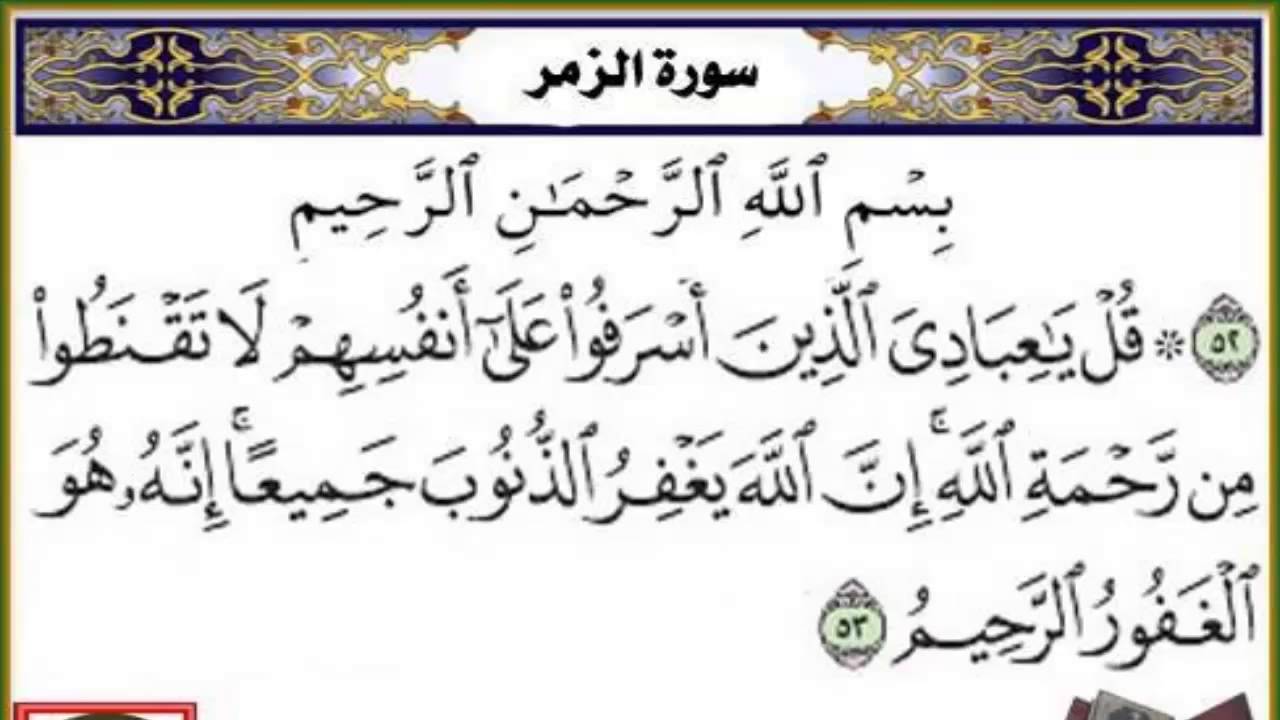 سورة الزمر
بِسْمِ ٱللَّهِ ٱلرَّحْمَـٰنِ ٱلرَّحِيمِ
٥٢ ۞ قُلْ يَـٰعِبَادِىَ ٱلَّذِينَ أَسْرَفُوا۟ عَلَىٰٓ أَنفُسِهِمْ لَا تَقْنَطُوا۟
مِن رَّحْمَةِ ٱللَّهِ ۚ إِنَّ ٱللَّهَ يَغْفِرُ ٱلذُّنُوبَ جَمِيعًا ۚ إِنَّهُۥ هُوَ
ٱلْغَفُورُ ٱلرَّحِيمُ ٥٣